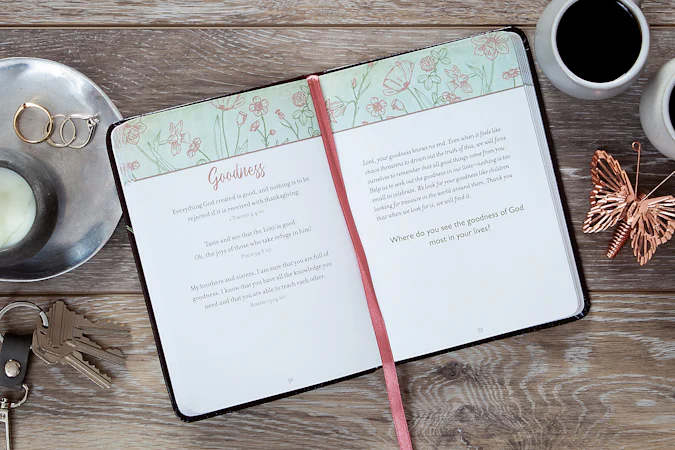 Goodness
Everything God created is good, and nothing is to be
rejected if it is received with thanksgiving.
1 Timothy 4:4
Taste and see that the LORD is good.
Oh, the joys of those who take refuge in him!
Psalm 34:8
My brothers and sisters, I am sure that you are full of
goodness. I know that you have all the knowledge you
need and that you are able to teach each other.
Romans 15:14
Lord, your goodness knows no end. Even when it feels like
chaos threatens to drown out the truth of this, we will force
ourselves to remember that all good things come from you.
Help us to seek out the goodness in our lives—nothing is too
small to celebrate. We look for your goodness like children
looking for treasure in the world around them. Thank you
that when we look for it, we will find it.
Where do you see the goodness of God
most in your lives?